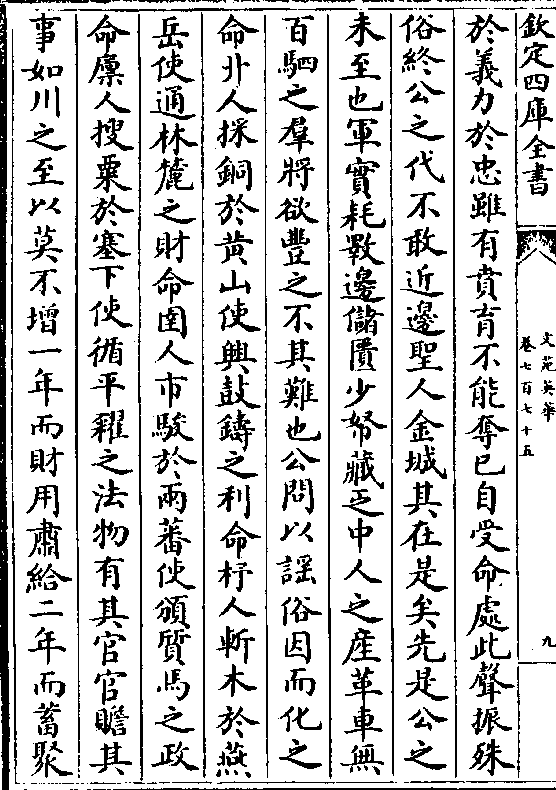 欽定四庫全書
文苑英華
卷七百七十五
九
於義力於忠雖有賁育不能奪已自受命處此聲振殊
俗終公之代不敢近邊聖人金城其在是矣先是公之
未至也軍實耗斁邊儲匱少帑藏乏中人之産革車無
百駟之羣將欲豐之不其難也公問以謡俗因而化之
命丱人採銅於黄山使興鼓鑄之利命杼人斬木於燕
岳使通林麓之財命圉人市駿於兩蕃使頒質馬之政
命廩人搜粟於塞下使循平糴之法物有其官官贍其
事如川之至以莫不增一年而財用肅給二年而蓄聚